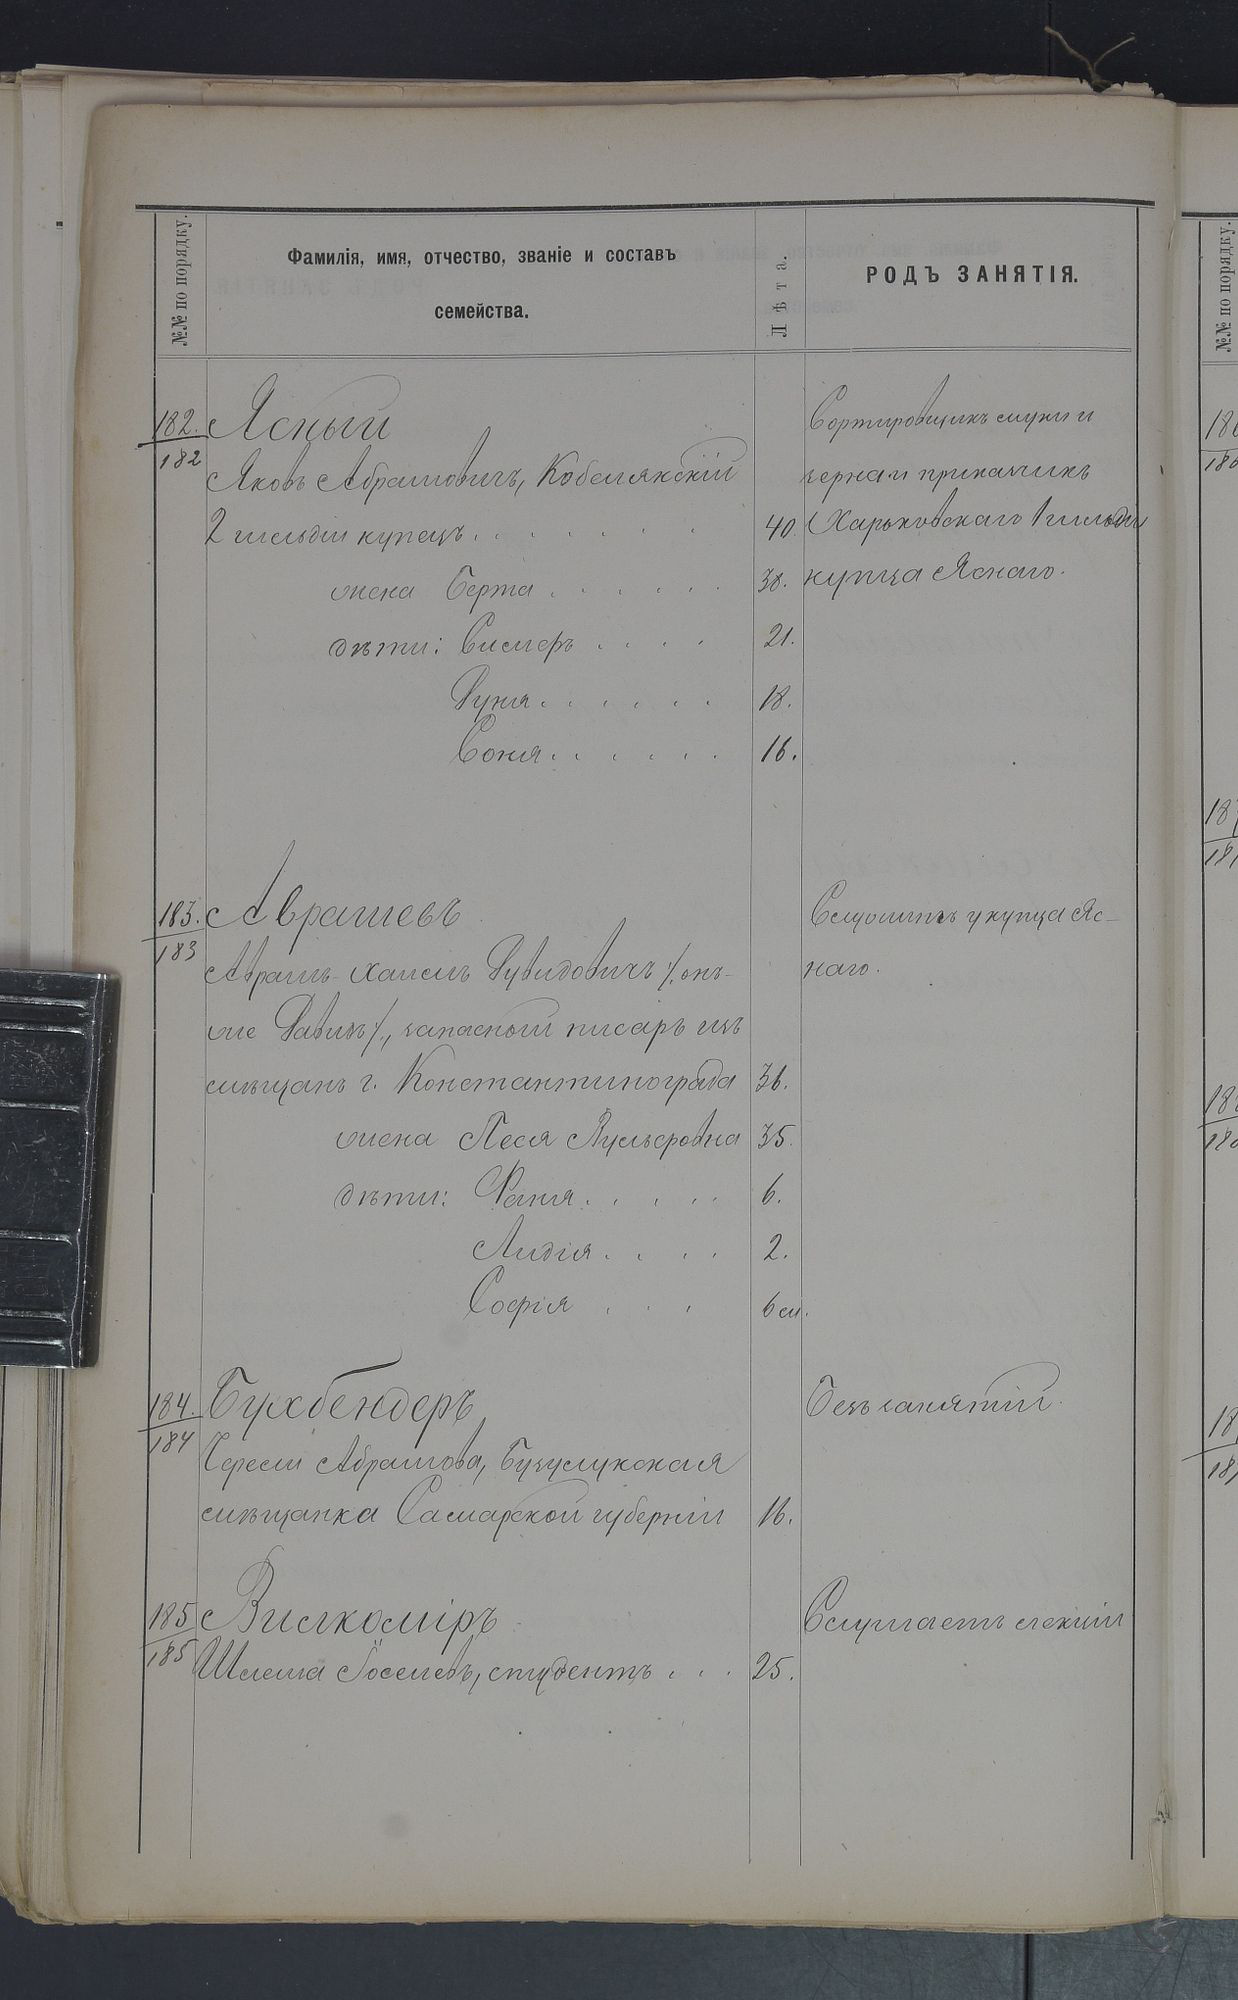 №№ по порядку.
Фамилія, имя, отчество, званіе и составъ
семейства.
Лѣта.
РОДЪ ЗАНЯТІЯ.
182. Ясный
182
Яковъ Абрамовичъ, Кобелякскій
2 гильдіи купецъ . . . . . . . 40
жена Берта . . . . . . 38.
дѣти: . . . . 21.
. . . . . . 18.
Соня . . . . . . 16.
Сортировщикъ муки и
зерна и приказчикъ
Харьковскаго 1 гильдіи
купца Яснаго.
183. Аврашевъ
183
Хаимъ Рувидовичъ /: онъ-
же Давидъ /:, запасной писарь изъ
мѣщанъ г. Константинограда 36.
жена Песя 35.
дѣти: Фаня . . . . . 6.
Лидія . . . . 2.
Софія . . . 6 м.
Служитъ у купца Яс-
наго.
184. Бухбендеръ
184
Абрамова, Бузулукская
мѣщанка Самарской губерніи 16.
Безъ занятій.
185 Вилкоміръ
185
Шлема Іоселевъ, студентъ . . . 25.
Слушаетъ лекціи
№№ по порядку.